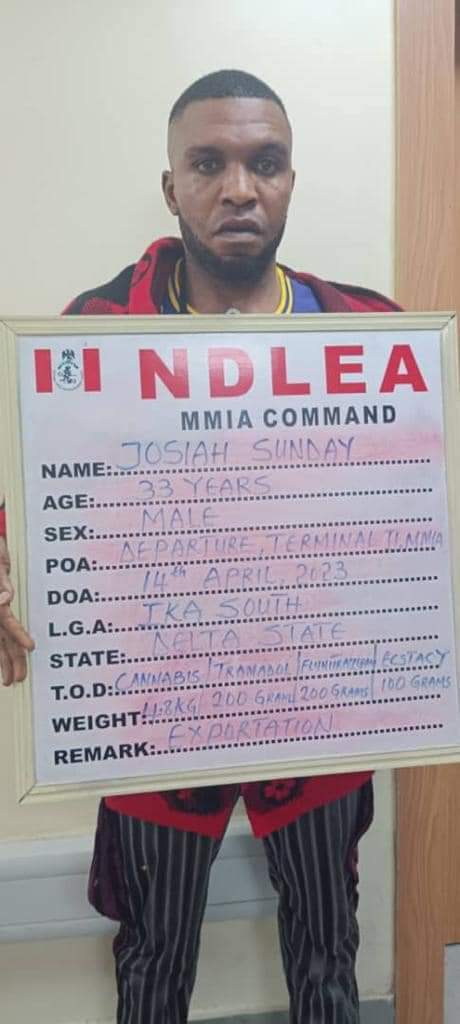 NDLEA
MMIA COMMAND
NAME: JOSIAH SUNDAY
AGE: 33 YEARS
SEX: MALE
POA: DEPARTURE, TERMINAL II, MMIA
DOA: 14th APRIL, 2023
L.G.A: IKA SOUTH
STATE: DELTA STATE
T.O.D: CANNABIS | TRAMADOL | | ECSTACY
WEIGHT: 4.8KG | 200 GRAM | 200 GRAMS | 100 GRAMS
REMARK: EXPORTATION